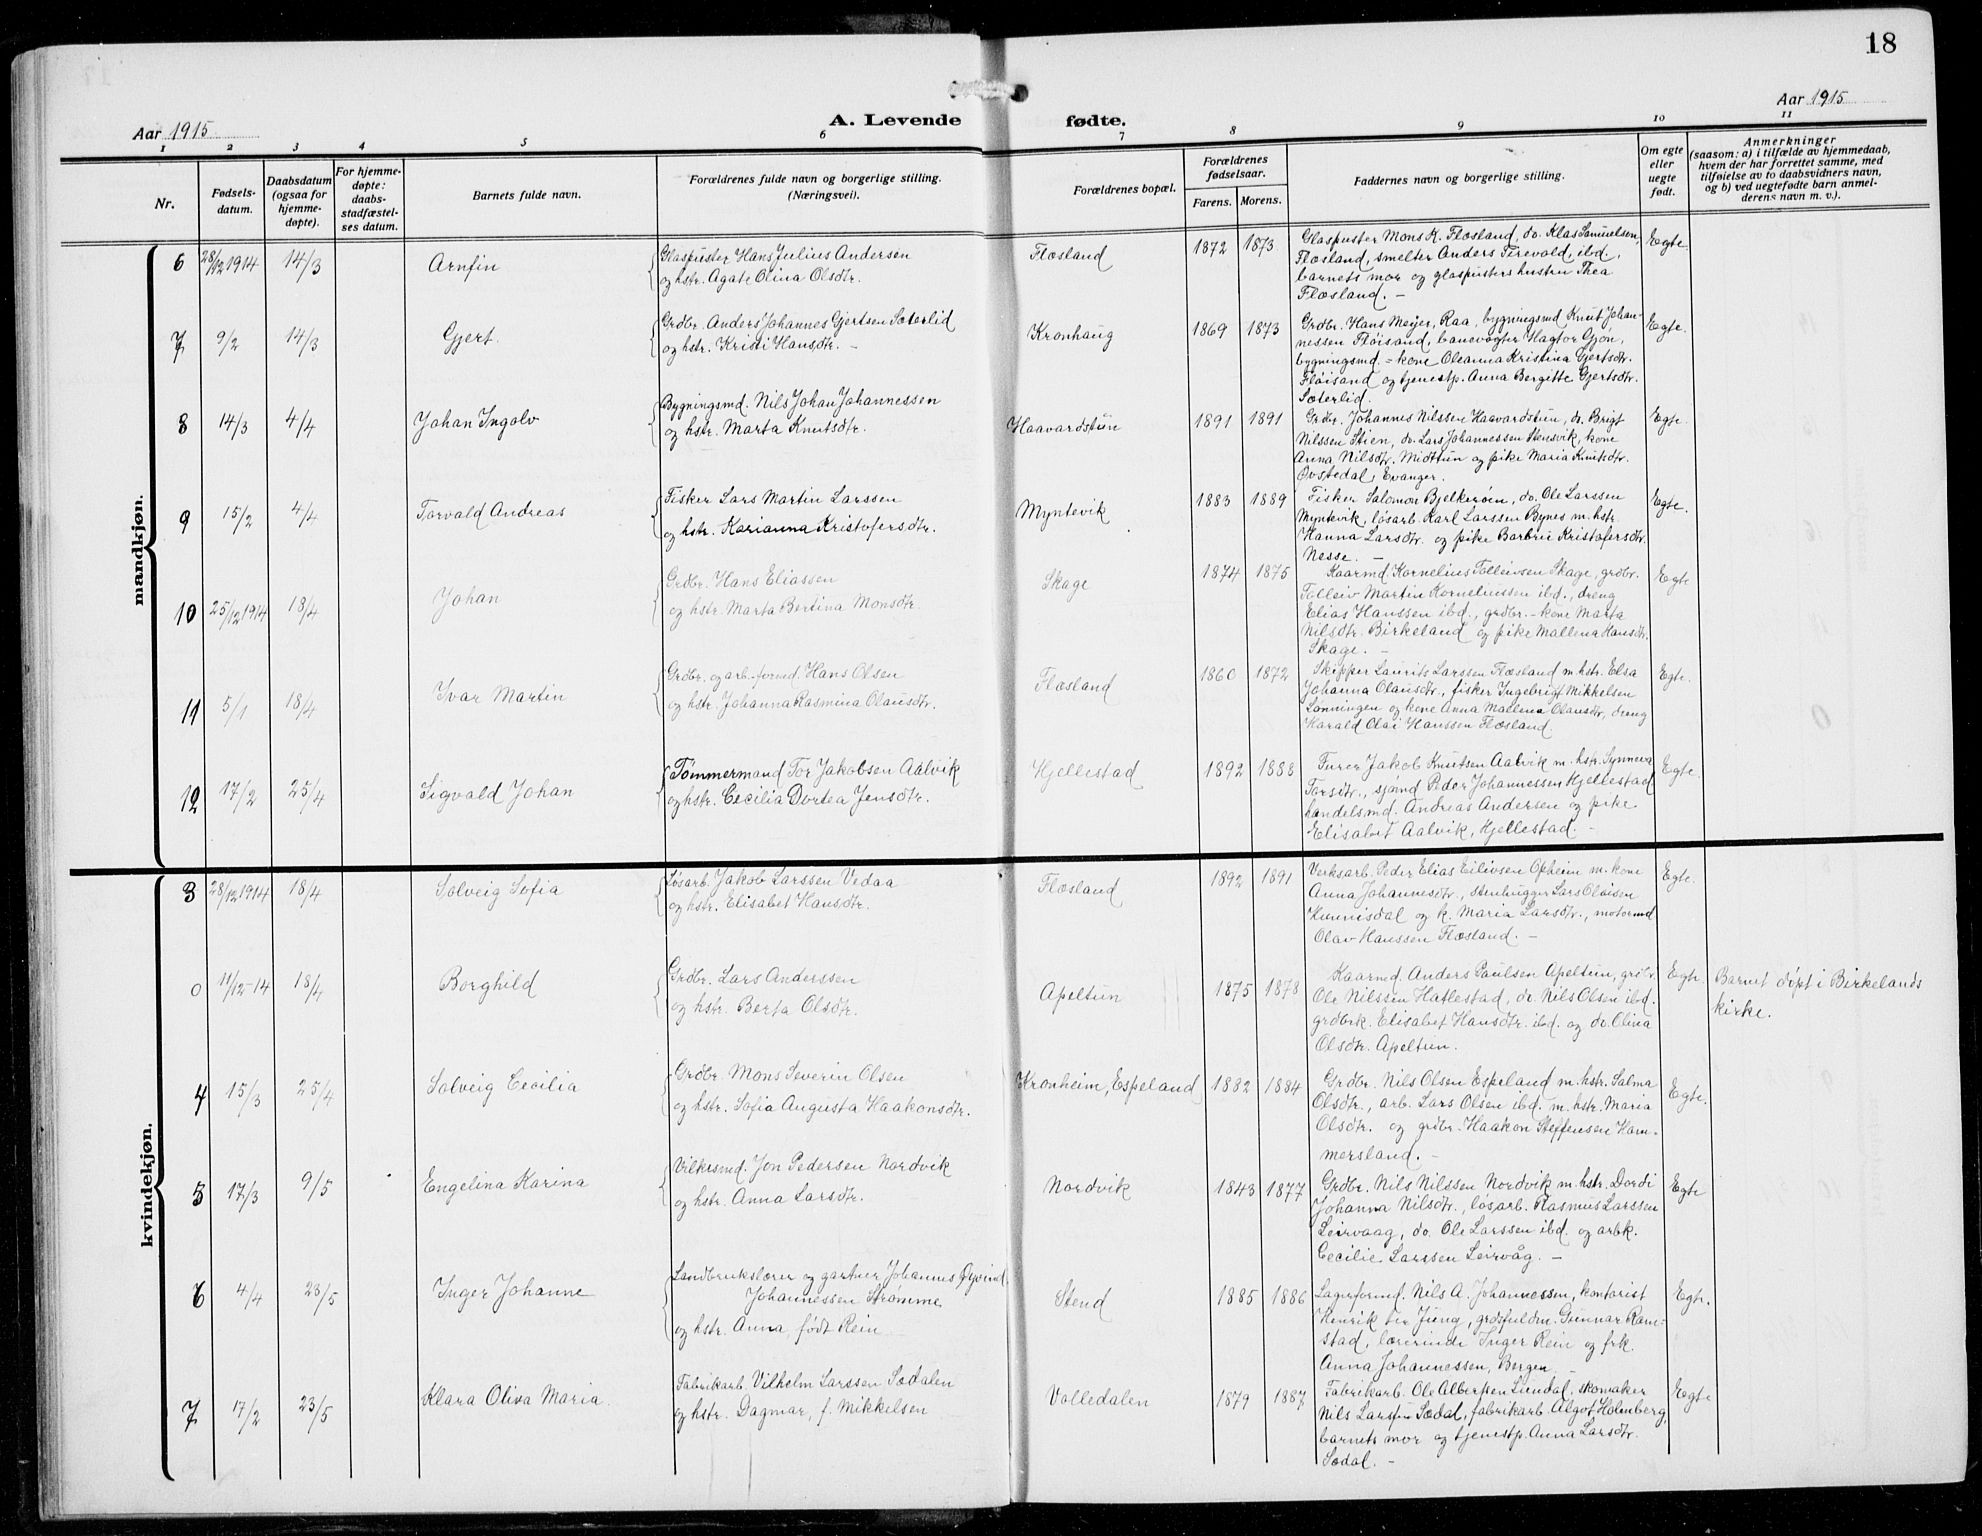 18
Aar 1915
A. Levende fødte.
Aar 1915
1 2 3 4 5 6 7 8 9 10 11
Nr.
Fødsels-
datum.
Daabsdatum
(ogsaa for
hjemme-
døpte).
For hjemme-
døpte:
daabs-
stadfæstel-
ses datum.
Barnets fulde navn.
Forældrenes fulde navn og borgerlige stilling.
(Næringsvei).
Forældrenes bopæl.
Forældrenes
fødselsaar.
Farens. Morens.
Faddernes navn og borgerlige stilling.
Om egte
eller
uegte
født.
Anmerkninger
(saasom: a) i tilfælde av hjemmedaab,
hvem der har forrettet samme, med
tilføielse av to daabsvidners navn,
og b) ved uegtefødte barn anmel-
derens navn m. v.).
mandkjøn.
6 28/12 1914 14/3 Arnfin
Glaspuster Hans Julius Andersen
og hstr. Agate Olina Olsdtr.
Flæsland 1872 1873
Glaspuster Mons K. Flæsland, do. Klas Samuelsen,
Flæsland, smelter Anders Tirevald, ibd.,
barnets mor og glaspusters hustru Thea
Flæsland. —
Egte
7 9/2 14/3 Gjert.
Grdbr. Anders Johannes Gjertsen Sæterlid
og hstr. Kristi Hansdtr. —
Kronhaug 1869 1873
Grdbr. Hans Meyer, Raa, bygningsmd Knut Johan-
nessen Fløisand, banevogter Hagtor Gjøn,
bygningsmd. = kone Oleanna Kristina Gjertsdtr.
Fløisand og tjenestp. Anna Bergitte Gjertsdtr.
Sæterlid.
Egte.
8 14/3 4/4 Johan Ingolv
Bygningsmd. Nils Johan Johannessen
og hstr. Marta Knutsdtr.
Haavardstun 1891 1891
Grdbr. Johannes Nilssen Haavardstun, do. Brigt
Nilssen Stien, do. Lars Johannessen Stensvik, kone
Anna Nilsdtr. Midttun og pike Maria Knutsdtr.
Øvstedal, Evanger.
Egte.
9 15/2 4/4 Torvald Andreas
Fisker Lars Martin Larssen
og hstr. Karianna Kristofersdtr.
Myntevik 1883 1889
Fisker Salomon Bjelkerøen, do. Ole Larssen
Myntevik, løsarb. Karl Larssen Bynes m. hstr.
Hanna Larsdtr. og pike Barbrie Kristofersdtr.
Nesse. —
Egte.
10 25/12 1914 18/4 Johan
Grdbr. Hans Eliassen
og hstr. Marta Bertina Monsdtr.
Skage 1874 1875
Kaarmd. Kornelius Tolleivsen Skage, grdbr.
Tolleiv Martin Korneliussen ibd., dreng
Elias Hanssen ibd., grdbr. - kone Marta
Nilsdtr. Birkeland og pike Mallena Hansdtr.
Skage. —
Egte
11 5/1 18/4 Ivar Martin
Grdbr. og arb.-formd. Hans Olsen
og hstr. Johanna Rasmina Olausdtr.
Flæsland 1860 1872
Skipper Laurits Larssen Flæsland m. hstr. Elsa
Johanna Olausdtr., fisker Ingebrigt Mikkelsen
Lønningen og kone Anna Mallena Olausdtr., dreng
Harald Olai Hanssen Flæsland
Egte.
12 17/2 25/4 Sigvald Johan
Tømmermand Tor Jakobsen Aalvik
og hstr. Cecilia Dortea Jensdtr.
Hjellestad 1892 1888
Furer Jakob Knutsen Aalvik m. hstr. Synneva
Torsdtr., sjømd Peder Johannessen Hjellestad
handelsmd. Andreas Andersen og pike
Elisabet Aalvik, Hjellestad. —
Egte.
kvindekjøn.
3 28/12 1914 18/4 Solveig Sofia
Løsarb. Jakob Larssen Vedaa
og hstr. Elisabet Hansdtr.
Flæsland 1892 1891
Verksarb. Peder Elias Eilivsen Opheim m. kone
Anna Johannesdtr., stenhugger Lars Olaisen
Kunnisdal og k. Maria Larsdtr., motormd
Olav Hanssen Flæsland. —
Egte.
0 11/12-14 18/4 Borghild
Grdbr. Lars Anderssen
og hstr. Berta Olsdtr.
Apeltun 1875 1878
Kaarmd. Anders Paulsen Apeltun, grdbr.
Ole Nilssen Hatlestad, do. Nils Olsen ibd.
grdbrk. Elisabet Hansdtr. ibd. og do. Olina
Olsdtr. Apeltun.
Egte.
Barnet døpt i Birkelands
kirke.
4 15/3 25/4 Solveig Cecilia
Grdbr. Mons Severin Olsen
og hstr. Sofia Augusta Haakonsdtr.
Kronheim, Espeland 1882 1884
Grdbr. Nils Olsen Espeland m. hstr. Salma
Olsdtr., arb. Lars Olsen ibd. m. hstr. Maria
Olsdtr. og grdbr. Haakon Steffensen Ham-
mersland. —
Egte.
5 17/3 9/5 Engelina Karina
Vilkrsmd. Jon Pedersen Nordvik
og hstr. Anna Larsdtr.
Nordvik 1843 1877
Grdbr. Nils Nilssen Nordvik m. hstr. Dordi
Johanna Nilsdtr., løsarb. Rasmus Larssen
Leirvaag, do. Ole Larssen ibd. og arbk.
Cecilie Larssen Leirvåg. —
Egte
6 4/4 23/5 Inger Johanne
Landbrukslærer og gartner Johannes Øyvind
Johannessen Strømme
og hstr. Anna, født Rein
Stend 1885 1886
Lagerformd. Nils A. Johannessen, kontorist
Henrik ter Jung, grdsfuldm. Gunnar Ram-
stad, lærerinde Inger Rein og frk.
Anna Johannessen, Bergen. —
Egte.
7 17/2 23/5 Klara Oliva Maria.
Fabrikarb. Vilhelm Larssen Sædalen
og hstr. Dagmar, f. Mikkelsen
Valledalen 1879 1887
Fabrikarb. Ole Albertsen Liendal, skomaker
Nils Larssen Sædal, fabrikarb. Algot Holmberg,
barnets mor og tjenestp. Anna Larsdtr.
Sædal. —
Egte